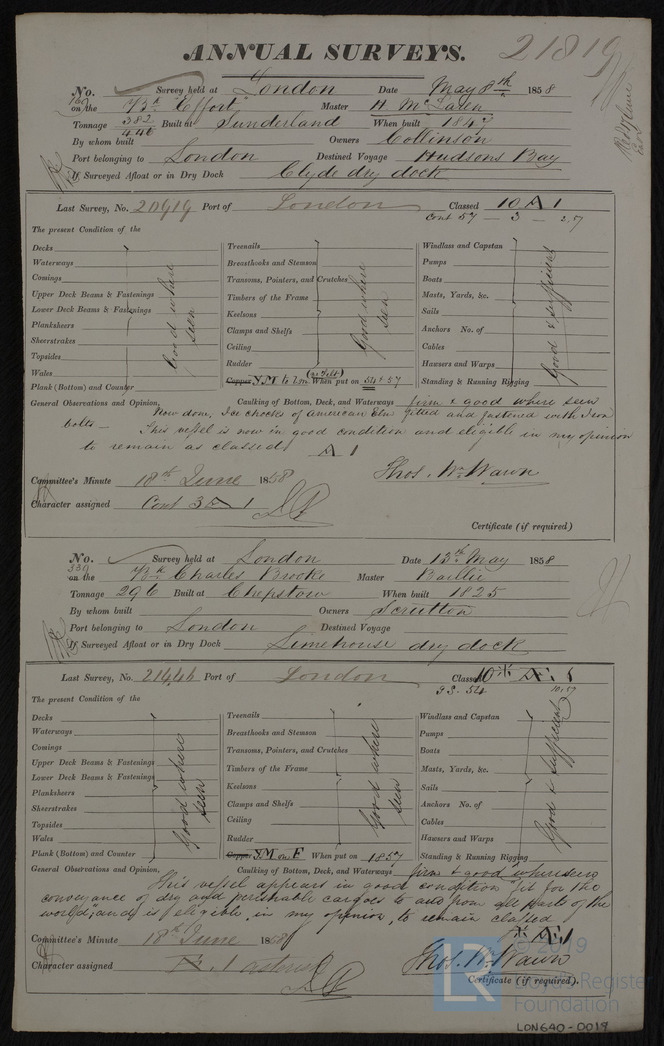 ANNUAL SURVEYS. 21819
No. Survey held at London Date May 8th 1858
160 on the Bk Effort Master H McLaren
Tonnage 382 446 Built at Sunderland When built 1847
By whom built Owners Collinson
Port belonging to London Destined Voyage Hudsons Bay
If Surveyed Afloat or in Dry Dock Clyde dry dock
Last Survey, No. 20919 Port of London Classed 10 A 1
Cont 57 - 3 - 2.57
The present Condition of the
Decks Treenails Windlass and Capstan
Waterways Breasthooks and Stemson Pumps
Comings Transoms, Pointers, and Crutches Boats
Upper Deck Beams & Fastenings Timbers of the Frame Masts, Yards, &c.
Lower Deck Beams & Fastenings Keelsons Sails
Planksheers Clamps and Shelfs Anchors No. of
Sheerstrakes Ceiling Cables
Topsides Rudder Hawsers and Warps
Wales Copper YM When put on 57 Standing & Running Rigging
Plank (Bottom) and Counter
Good where seen
Good where seen
Good & sufficient
General Observations and Opinion, Caulking of Bottom, Deck, and Waterways firm & good where seen
Now done, Ice chocks of American Elm fitted and fastened with Iron
bolts -
This vessel is now in good condition and eligible in my opinion
to remain as classed A 1
Committee's Minute 18th June 1858 Thos. Wm. Wawn
Character assigned Cont 3 A 1
Certificate (if required)
No. Survey held at London Date 13th May 1858
330 on the Bk Charles Brooke Master Baillie
Tonnage 296 Built at Chepstow When built 1825
By whom built Owners Scrutton
Port belonging to London Destined Voyage
If Surveyed Afloat or in Dry Dock Limehouse dry dock
Last Survey, No. 21446 Port of London Classed 10 * A 1
S.S. 54 10,57
The present Condition of the
Decks Treenails Windlass and Capstan
Waterways Breasthooks and Stemson Pumps
Comings Transoms, Pointers, and Crutches Boats
Upper Deck Beams & Fastenings Timbers of the Frame Masts, Yards, &c.
Lower Deck Beams & Fastenings Keelsons Sails
Planksheers Clamps and Shelfs Anchors No. of
Sheerstrakes Ceiling Cables
Topsides Rudder Hawsers and Warps
Wales Copper YM on F When put on 1857 Standing & Running Rigging
Plank (Bottom) and Counter
Good where seen
Good where seen
Good & sufficient
General Observations and Opinion, Caulking of Bottom, Deck, and Waterways firm & good where seen
This vessel appears in good condition "fit for the
conveyance of dry and perishable cargoes to and from all parts of the
world," and is eligible, in my opinion, to remain classed
* A 1
Committee's Minute 18th June 1858
Character assigned Thos. W. Wawn
Certificate (if required).
© 2019
LR
Lloyd's Register
Foundation
LON640-0019